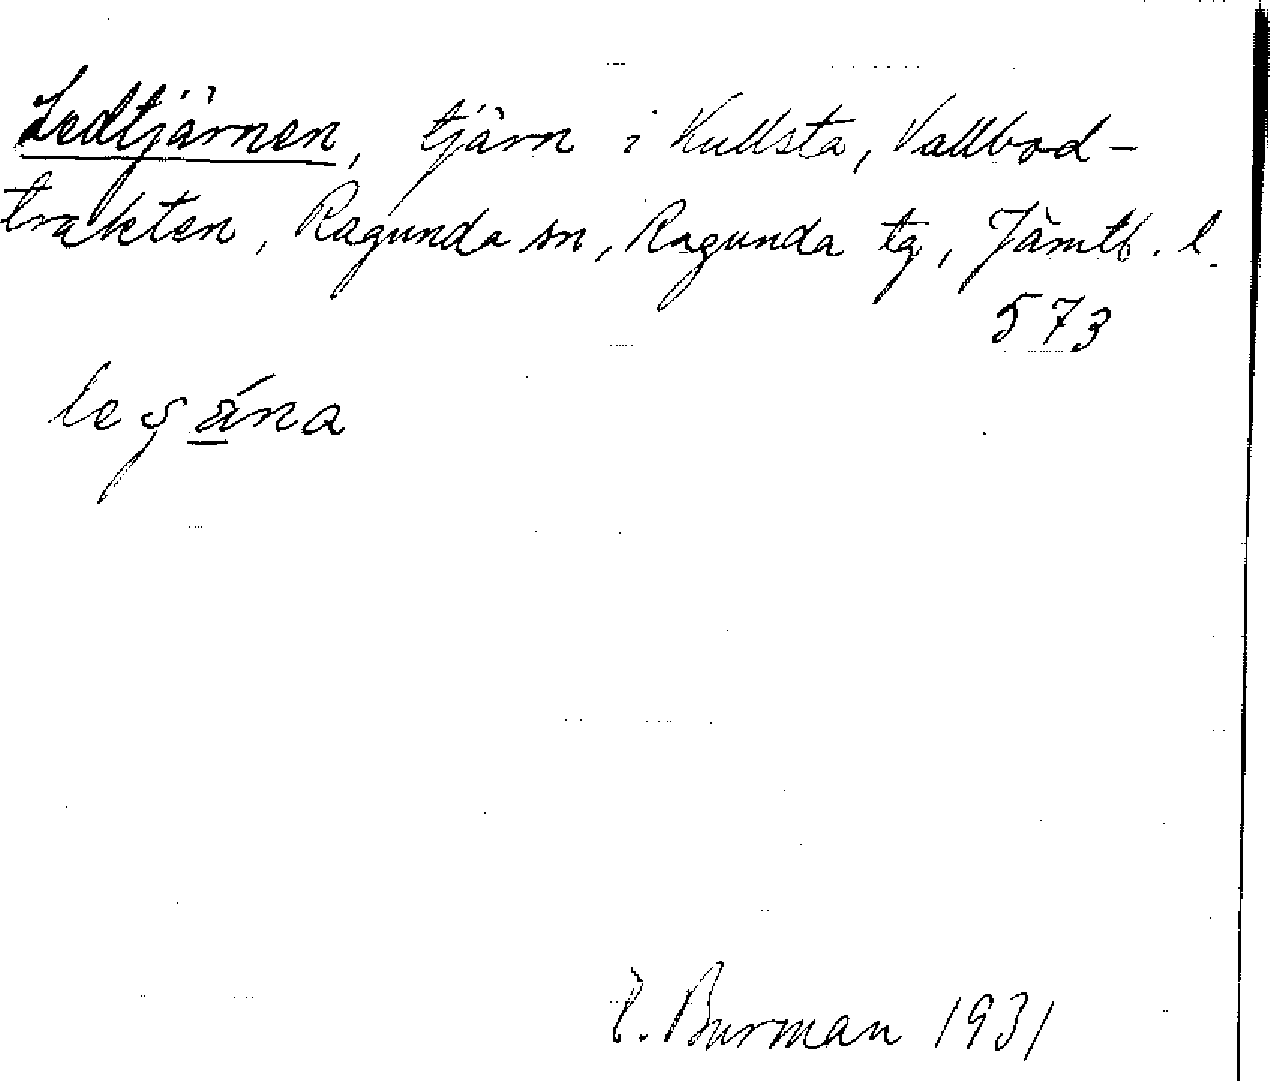 Ledtjärnen, tjärn i Kullsta, Vallbod-
trakten, Ragunda sn, Ragunda tg, Jämtl. l.
573
E. Burman 1931